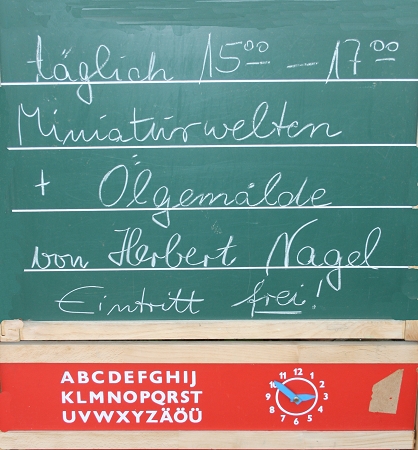 täglich 15⁰⁰ – 17⁰⁰
Miniaturwelten
+ Ölgemälde
von Herbert Nagel
Eintritt frei!
ABCDEFGHIJ
KLMNOPQRST
UVWXYZÄÖÜ
11 12 1
10 2
9 3
8 4
7 6 5